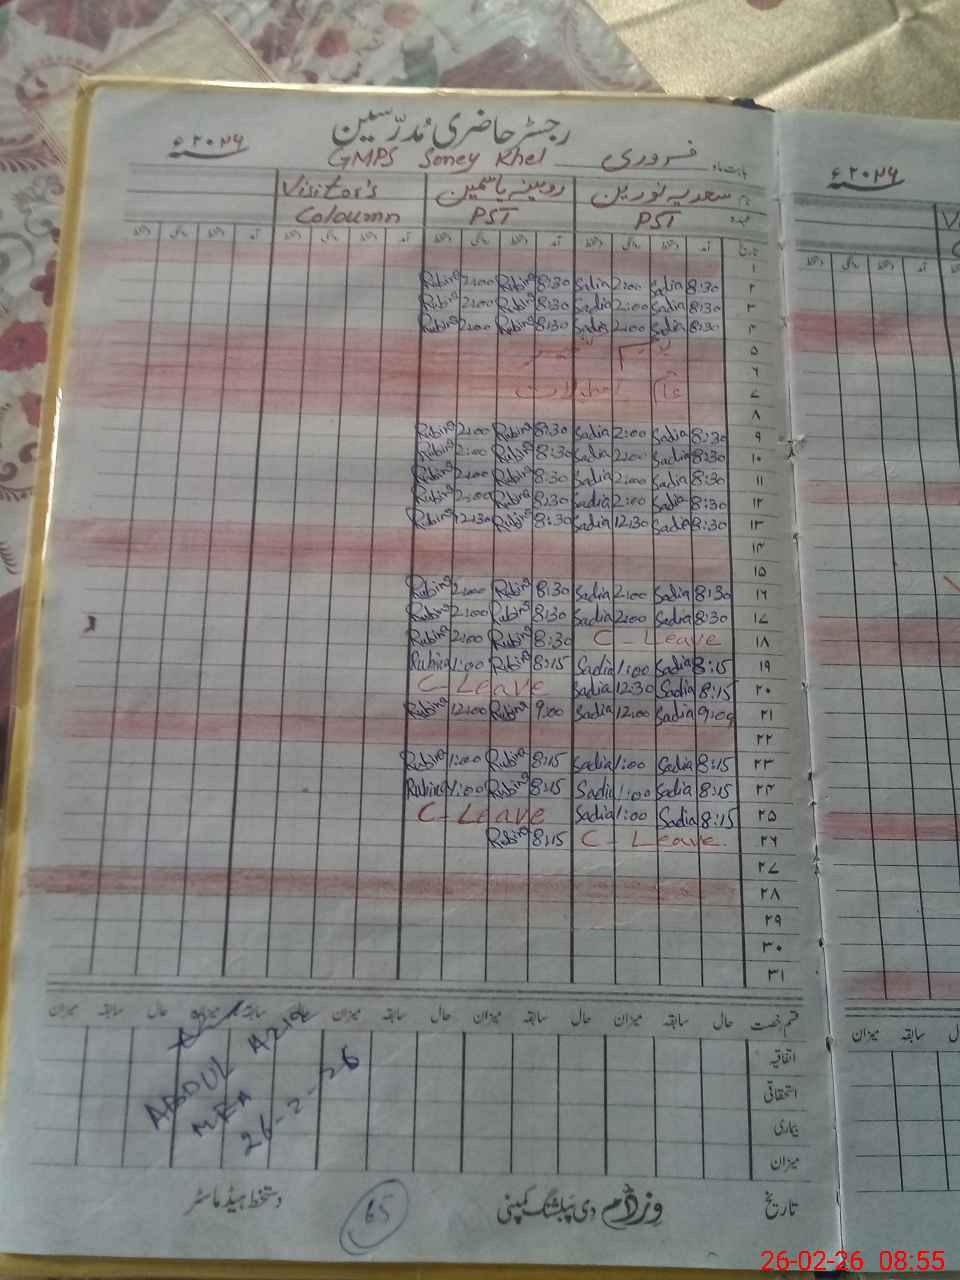 رجسٹر حاضری مدرّسین
۲۰۲۶ء
GMPS Soney Khel فروری بابت ماہ
۲۰۲۶ء
Visitor's روبینہ یاسمین سعدیہ نورین
Coloumn PST PST
۱
Rubina 2:00 Rubina 8:30 Sadia 2:00 Sadia 8:30 ۲
Rubina 2:00 Rubina 8:30 Sadia 2:00 Sadia 8:30 ۳
Rubina 2:00 Rubina 8:30 Sadia 2:00 Sadia 8:30 ۴
۵
۶
عام تعطیلات ۷
۸
Rubina 2:00 Rubina 8:30 Sadia 2:00 Sadia 8:30 ۹
Rubina 2:00 Rubina 8:30 Sadia 2:00 Sadia 8:30 ۱۰
Rubina 2:00 Rubina 8:30 Sadia 2:00 Sadia 8:30 ۱۱
Rubina 2:00 Rubina 8:30 Sadia 2:00 Sadia 8:30 ۱۲
Rubina 12:30 Rubina 8:30 Sadia 12:30 Sadia 8:30 ۱۳
۱۴
۱۵
Rubina 2:00 Rubina 8:30 Sadia 2:00 Sadia 8:30 ۱۶
Rubina 2:00 Rubina 8:30 Sadia 2:00 Sadia 8:30 ۱۷
Rubina 2:00 Rubina 8:30 C-Leave ۱۸
Rubina 1:00 Rubina 8:15 Sadia 1:00 Sadia 8:15 ۱۹
C-Leave Sadia 12:30 Sadia 8:15 ۲۰
Rubina 12:00 Rubina 9:00 Sadia 12:00 Sadia 9:00 ۲۱
۲۲
Rubina 1:00 Rubina 8:15 Sadia 1:00 Sadia 8:15 ۲۳
Rubina 1:00 Rubina 8:15 Sadia 1:00 Sadia 8:15 ۲۴
C-Leave Sadia 1:00 Sadia 8:15 ۲۵
Rubina 8:15 C-Leave. ۲۶
۲۷
۲۸
۲۹
۳۰
۳۱
قسم رخصت حال سابقہ میزان حال سابقہ میزان حال سابقہ میزان حال سابقہ میزان حال سابقہ میزان
اتفاقیہ
استحقاقی
بیماری
میزان
ABDUL AZIZ
MEA
26-2-26
تاریخ وزڈم دی پبلشنگ کمپنی دستخط ہیڈ ماسٹر
65
میزان سابقہ
26-02-26 08:55